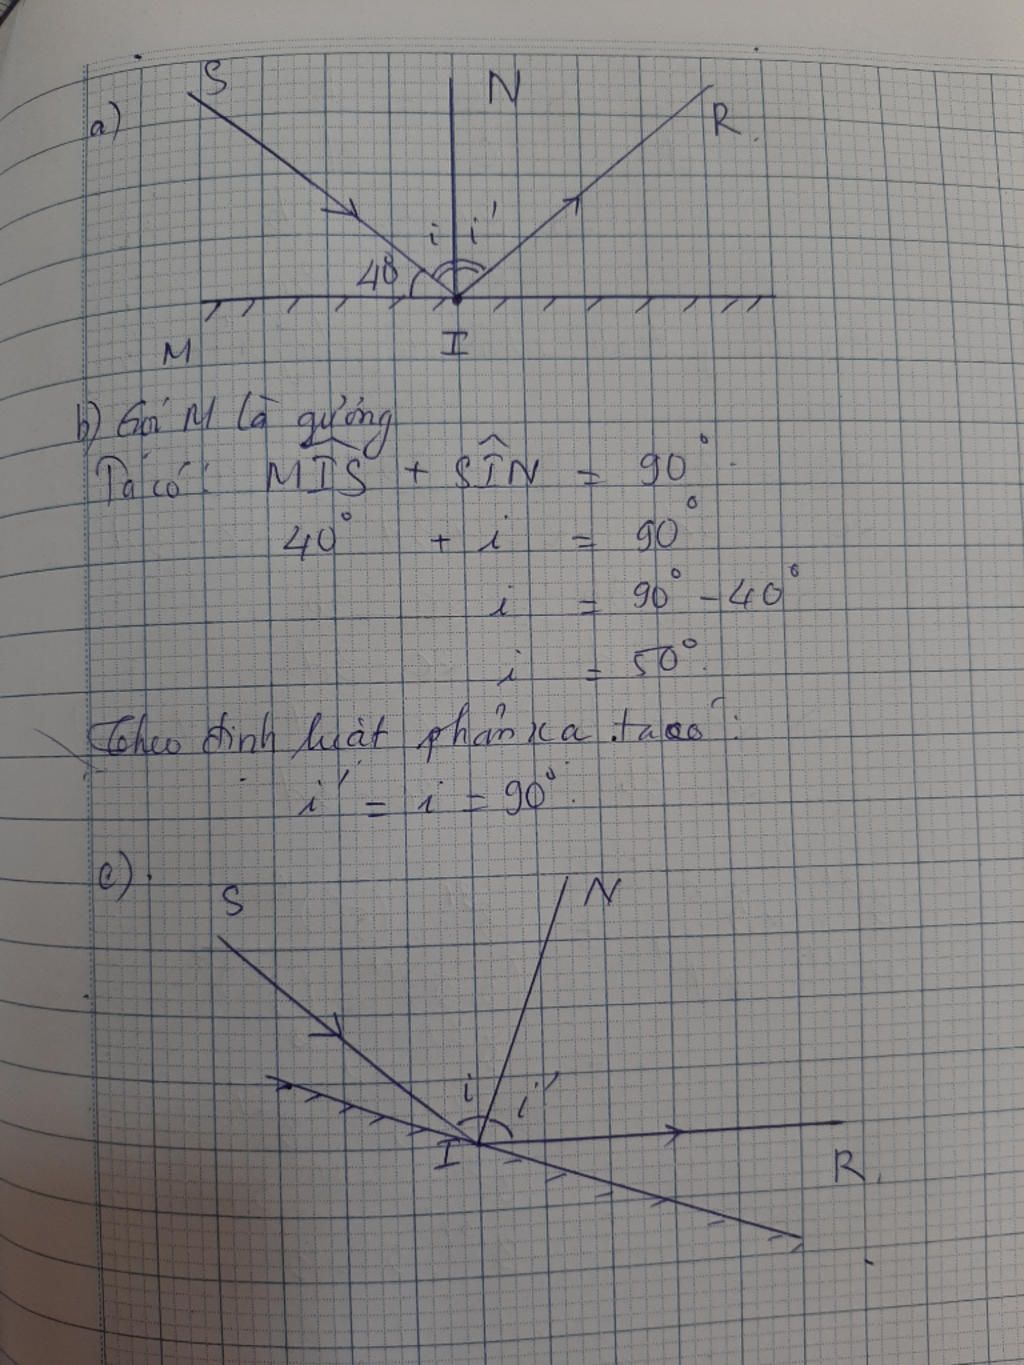 a)
S N R.
40° i i'
M I
b) Gọi M là gương
Ta có: MÎS + SÎN = 90°.
40° + i = 90°
i = 90° - 40°
i = 50°.
Theo định luật phản xạ ta có:
i' = i = 90°.
c)
S N
i i'
I R.